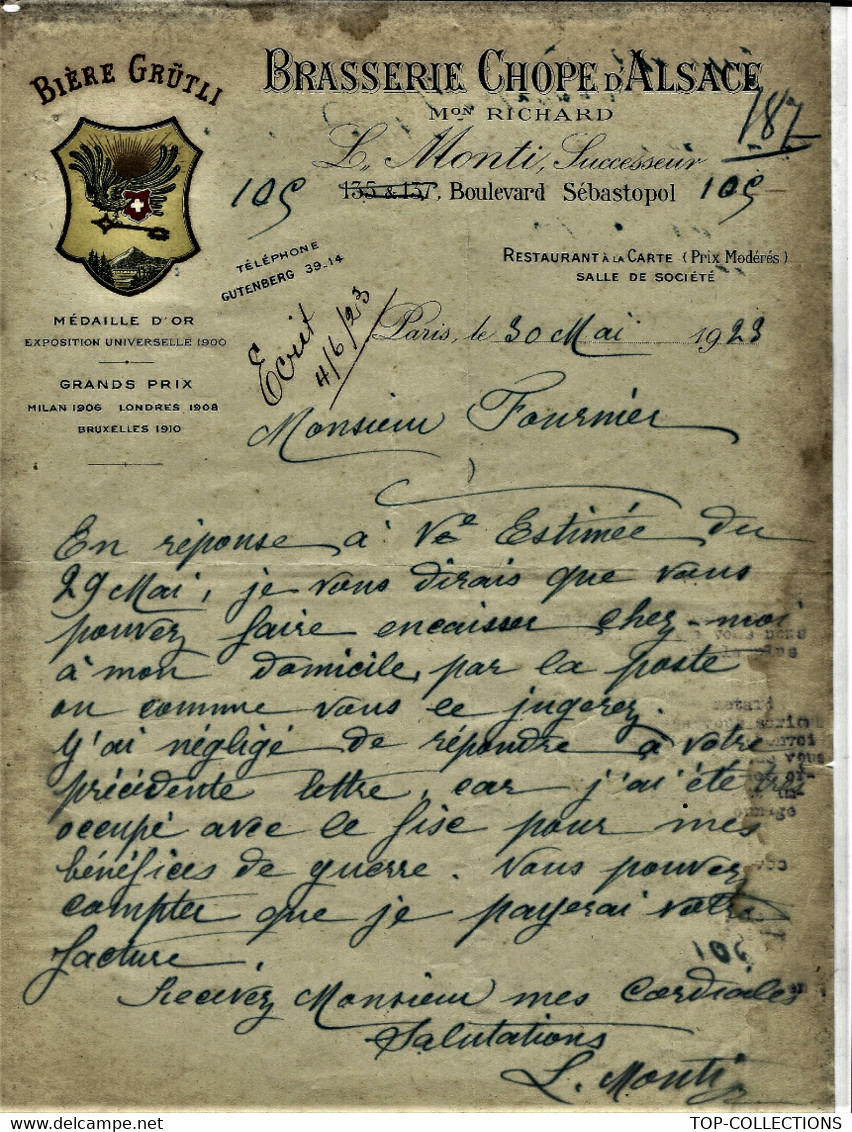 BIÈRE GRÜTLI
BRASSERIE CHOPE D'ALSACE
MON RICHARD
187
L. Monti, Successeur
105 135 & 137, Boulevard Sébastopol 105
TÉLÉPHONE
GUTENBERG 39-14
RESTAURANT À LA CARTE (Prix Modérés)
SALLE DE SOCIÉTÉ
MÉDAILLE D'OR
EXPOSITION UNIVERSELLE 1900
GRANDS PRIX
MILAN 1906 LONDRES 1908
BRUXELLES 1910
Ecrit
4/6/23
Paris, le 30 Mai 1923
Monsieur Fournier
En réponse à Ve Estimée du
29 Mai, je vous dirais que vous
pouvez faire encaisser chez-moi
à mon domicile, par la poste
ou comme vous le jugerez.
J'ai négligé de répondre à votre
précédente lettre, car j'ai été très
occupé avec le fisc pour mes
bénéfices de guerre. Vous pouvez
compter que je payerai votre
facture.
Recevez Monsieur mes Cordiales
Salutations
L. Monti
TOP-COLLECTIONS